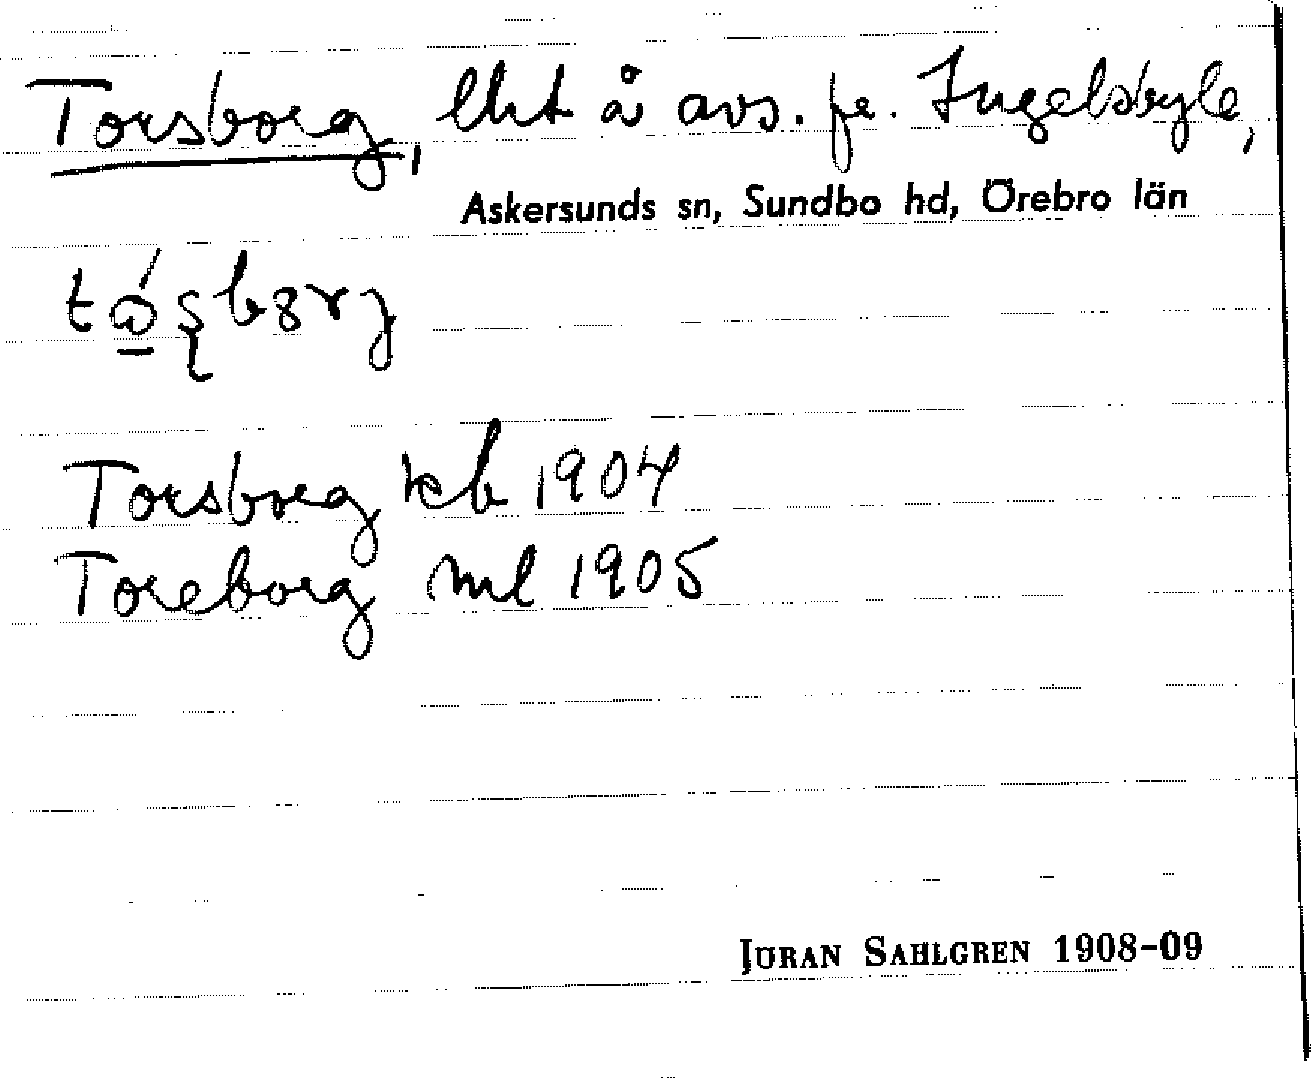 Torsborg, lht å avs. fr. Ingelsbyle,
Askersunds sn, Sundbo hd, Örebro län
Torsborg kb 1904
Toreborg ml 1905
JÖRAN SAHLGREN 1908-09